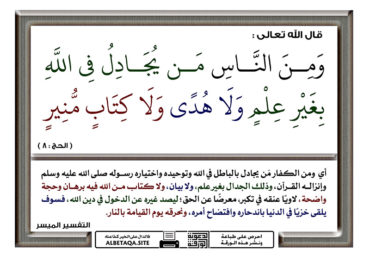 قال الله تعالى :
وَمِنَ النَّاسِ مَن يُجَادِلُ فِي اللَّهِ
بِغَيْرِ عِلْمٍ وَلَا هُدًى وَلَا كِتَابٍ مُّنِيرٍ
( الحج : ٨ )
أي ومن الكفار مَن يجادل بالباطل في الله وتوحيده واختياره رسوله صلى الله عليه وسلم
وإنزاله القرآن، وذلك الجدال بغير علم، ولا بيان، ولا كتاب من الله فيه برهان وحجة
واضحة، لاويًا عنقه في تكبر، معرضًا عن الحق؛ ليصد غيره عن الدخول في دين الله، فسوف
يلقى خزيًا في الدنيا باندحاره وافتضاح أمره، ونحرقه يوم القيامة بالنار.
التفسير الميسر
احرص على طباعة
ونشر هذه الورقة
فالدال على الخير كفاعله
ALBETAQA.SITE